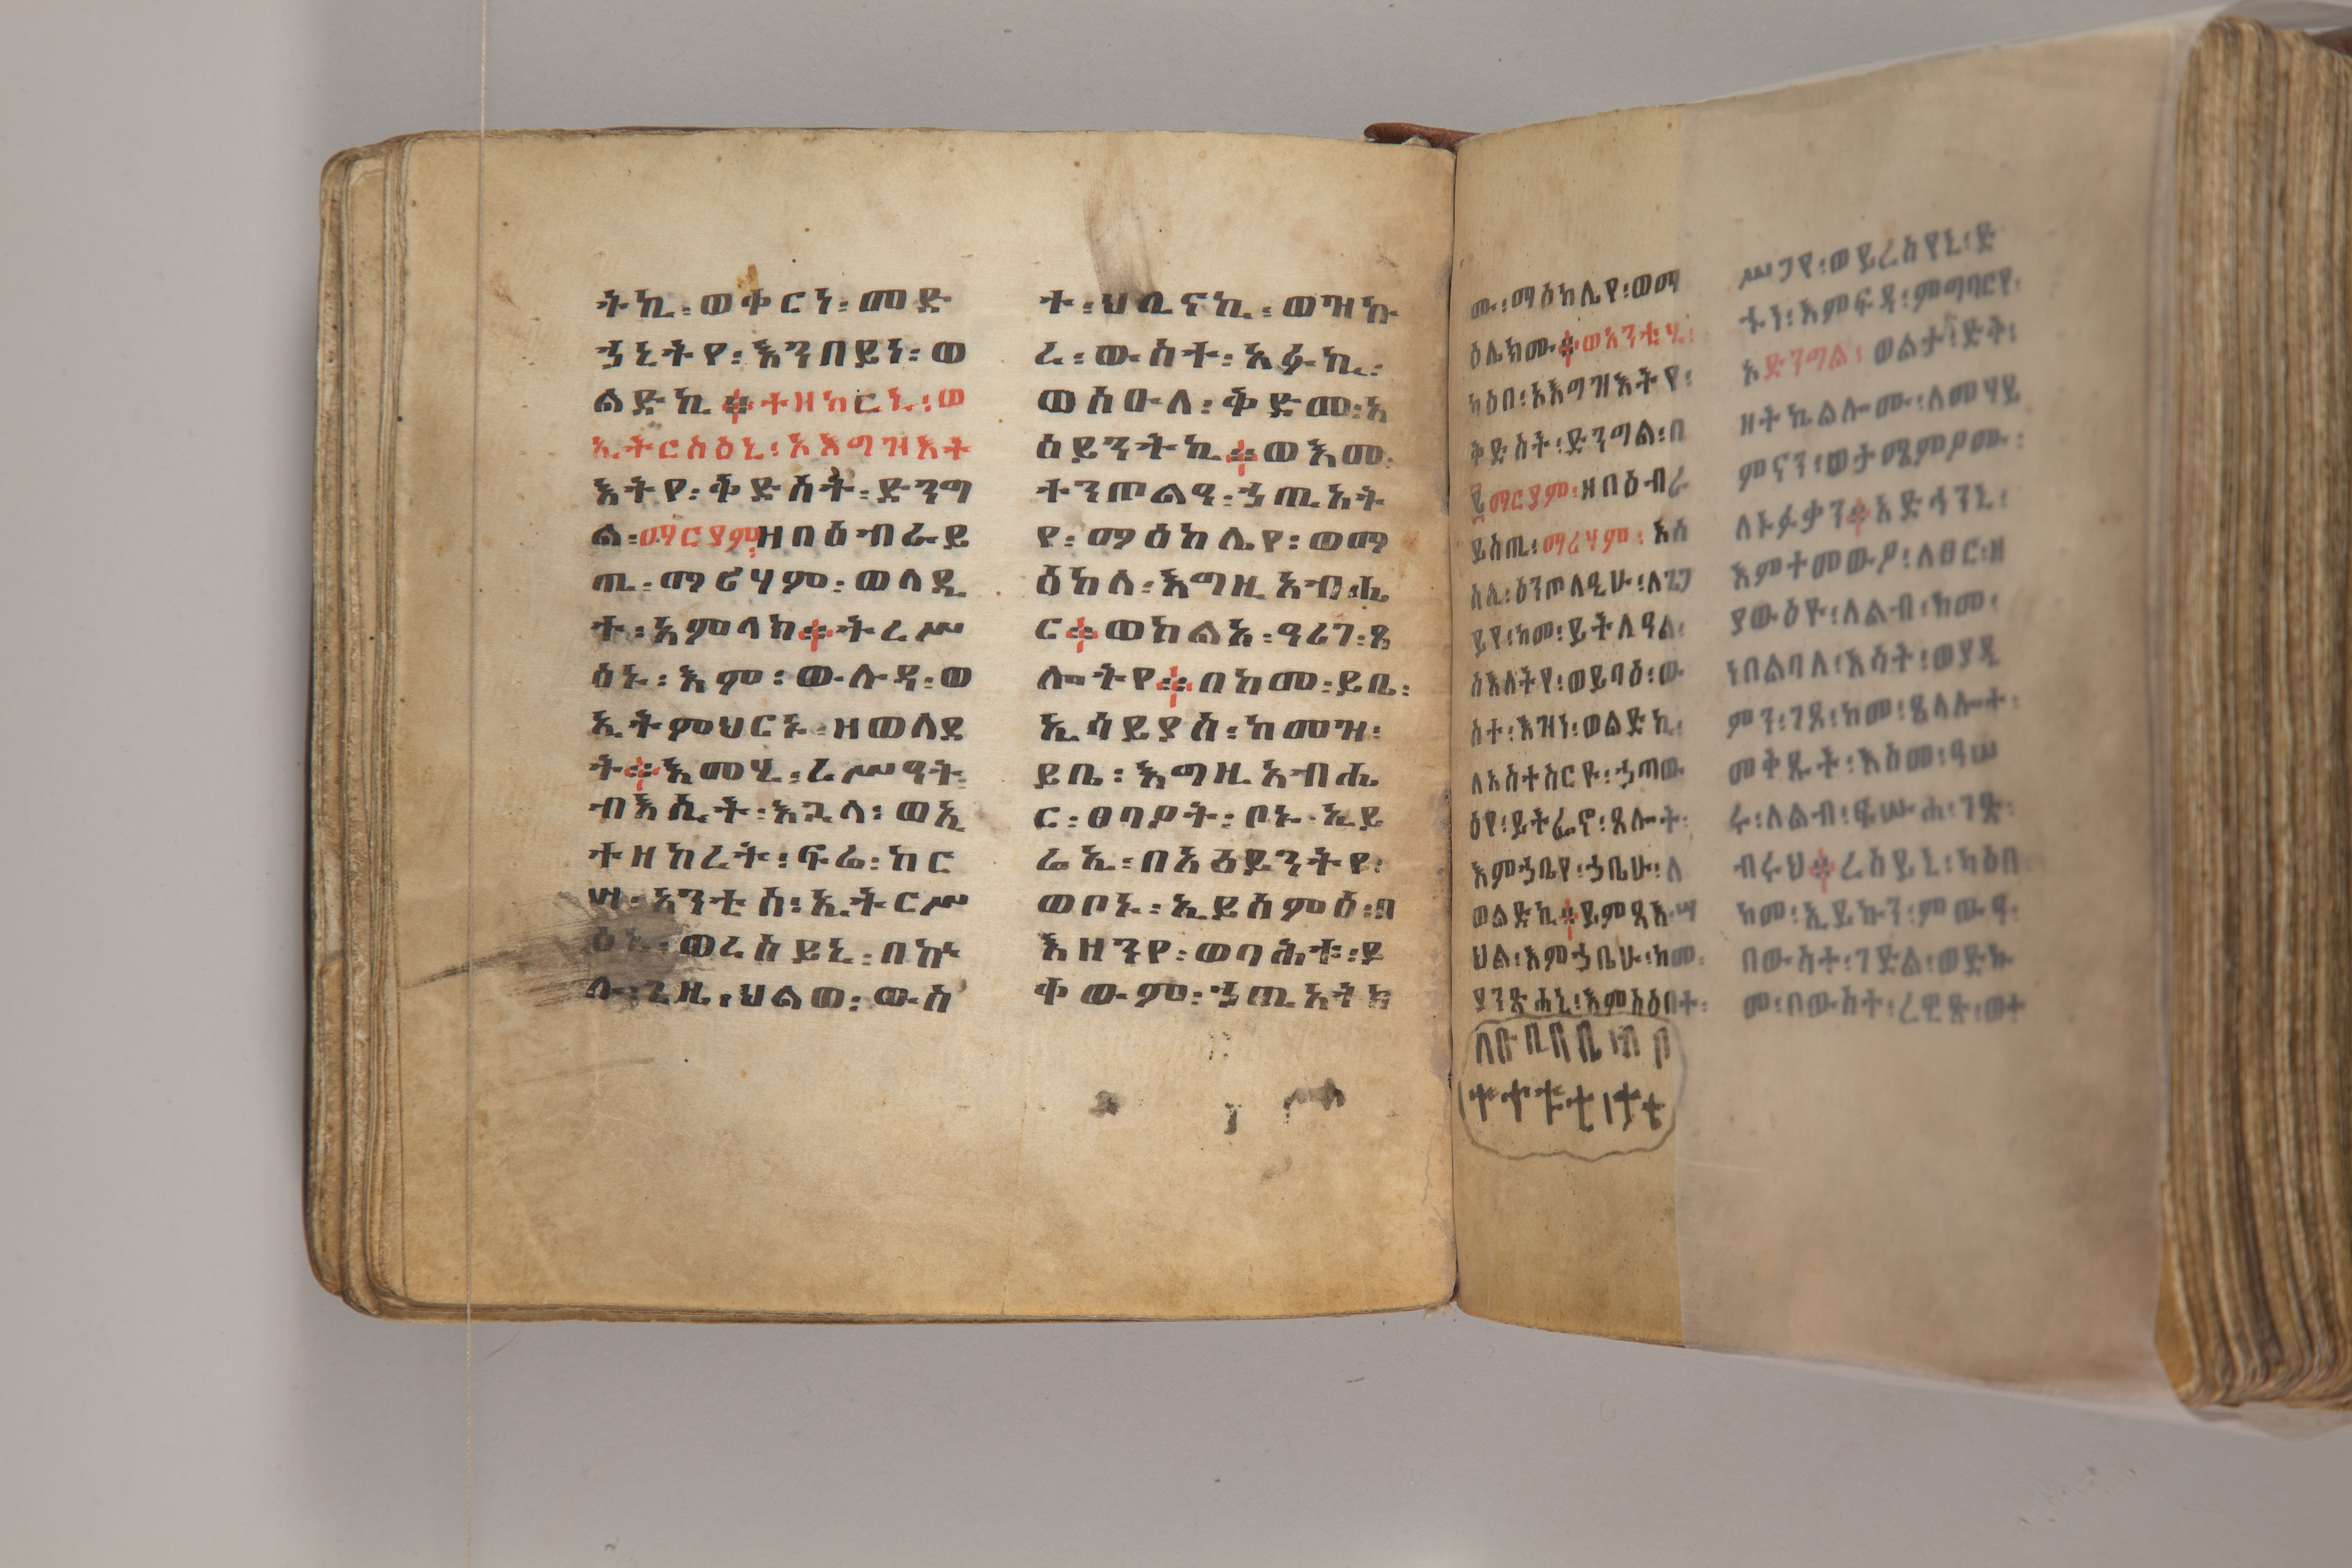 ትኪ፡ወቀርነ፡መድ
ኃኒትየ፡እንበይነ፡ወ
ልድኪ፨ተዘከርኒ፡ወ
ኢትርስዕኒ፡እእግዝእት
እትየ፡ቅድስት፡ድንግ
ል፡ማርያም፡ዘበዕብራይ
ጢ፡ማሪሃም፡ወላዲ
ተ፡አምላክ፨ትረሥ
ዕኑ፡እም፡ውሉዳ፡ወ
ኢትምህርኑ፡ዘወለደ
ት፨እመሂ፡ረሥዓት፡
ብእሲት፡እጓላ፡ወኢ
ተዘከረት፡ፍሬ፡ከር
ሣ፡አንቲሰ፡ኢትርሥ
ዕኒ፡ወረስይኒ፡በኵ
ሉ፡ጊዜ፡ህልወ፡ውስ
ተ፡ህሊናኪ፡ወዝኩ
ረ፡ውስተ፡አፉኪ፡
ወስዑለ፡ቅድመ፡አ
ዕይንትኪ፨ወእመ፡
ተንጦልዓ፡ኃጢአት
የ፡ማዕከሌየ፡ወማ
ዕከለ፡እግዚአብሔ
ር፨ወከልአ፡ዓሪገ፡ጸ
ሎትየ፨በከመ፡ይቤ፡
ኢሳይያስ፡ከመዝ፡
ይቤ፡እግዚአብሔ
ር፡ፀባዖት፡ቦኑ፡ኢይ
ሬኢ፡በአዕይንትየ፡
ወቦኑ፡ኢይሰምዕ፡በ
እዘንየ፡ወባሕቱ፡ይ
ቀውም፡ኃጢአትክ
ሙ፡ማዕከሌየ፡ወማ
ዕሌክሙ፨ወአንቲሂ፡
ካዕበ፡እእግዝእትየ፡
ቅድስት፡ድንግል፡በ
፪ማርያም፡ዘበዕብራ
ይስጢ፡ማሪሃም፡እስ
እለ፡ዕንጦላዒሁ፡ለንጋ
ይየ፡ከመ፡ይትለዓል፡
ስእለትየ፡ወይባዕ፡ው
ስተ፡እዝነ፡ወልድኪ፡
ለአስተስርዮ፡ኃጣው
ዕየ፡ይተፈኖ፡ጸሎት፡
እምኃቤየ፡ኃቤሁ፡ለ
ወልድኪ፨ይምጻእ፡ሣ
ህል፡እምኃቤሁ፡ከመ፡
ያንጽሐኒ፡እምአዕበተ፡
ሥጋየ፡ወይረስየኒ፡ድ
ሉ፡ነ፡እምፍዳ፡ምግባርየ፡
አድንግል፡ወልታ፡ድት፡
ዘትኬልሎሙ፡ለመሃይ
ምናን፡ወታሜምዖሙ፡
ለኑፉቃን፨አድኅንኒ፡
እምተመውዖ፡ለፀር፡ዘ
ያውዕዮ፡ለልብ፡ከመ፡
ነበልባለ፡እሳት፡ወያዴ
ምን፡ገጸ፡ከመ፡ጸላሎተ፡
መቅጹት፡እስመ፡ዓሠ
ሩ፡ለልብ፡ፍሡሐ፡ገጽ፡
ብሩህ፨ረስይኒ፡ካዕበ
ከመ፡ኢይኩን፡ምውዓ፡
በውስተ፡ገድል፡ወድኩ
መ፡በውስተ፡ረዊጽ፡ወተ